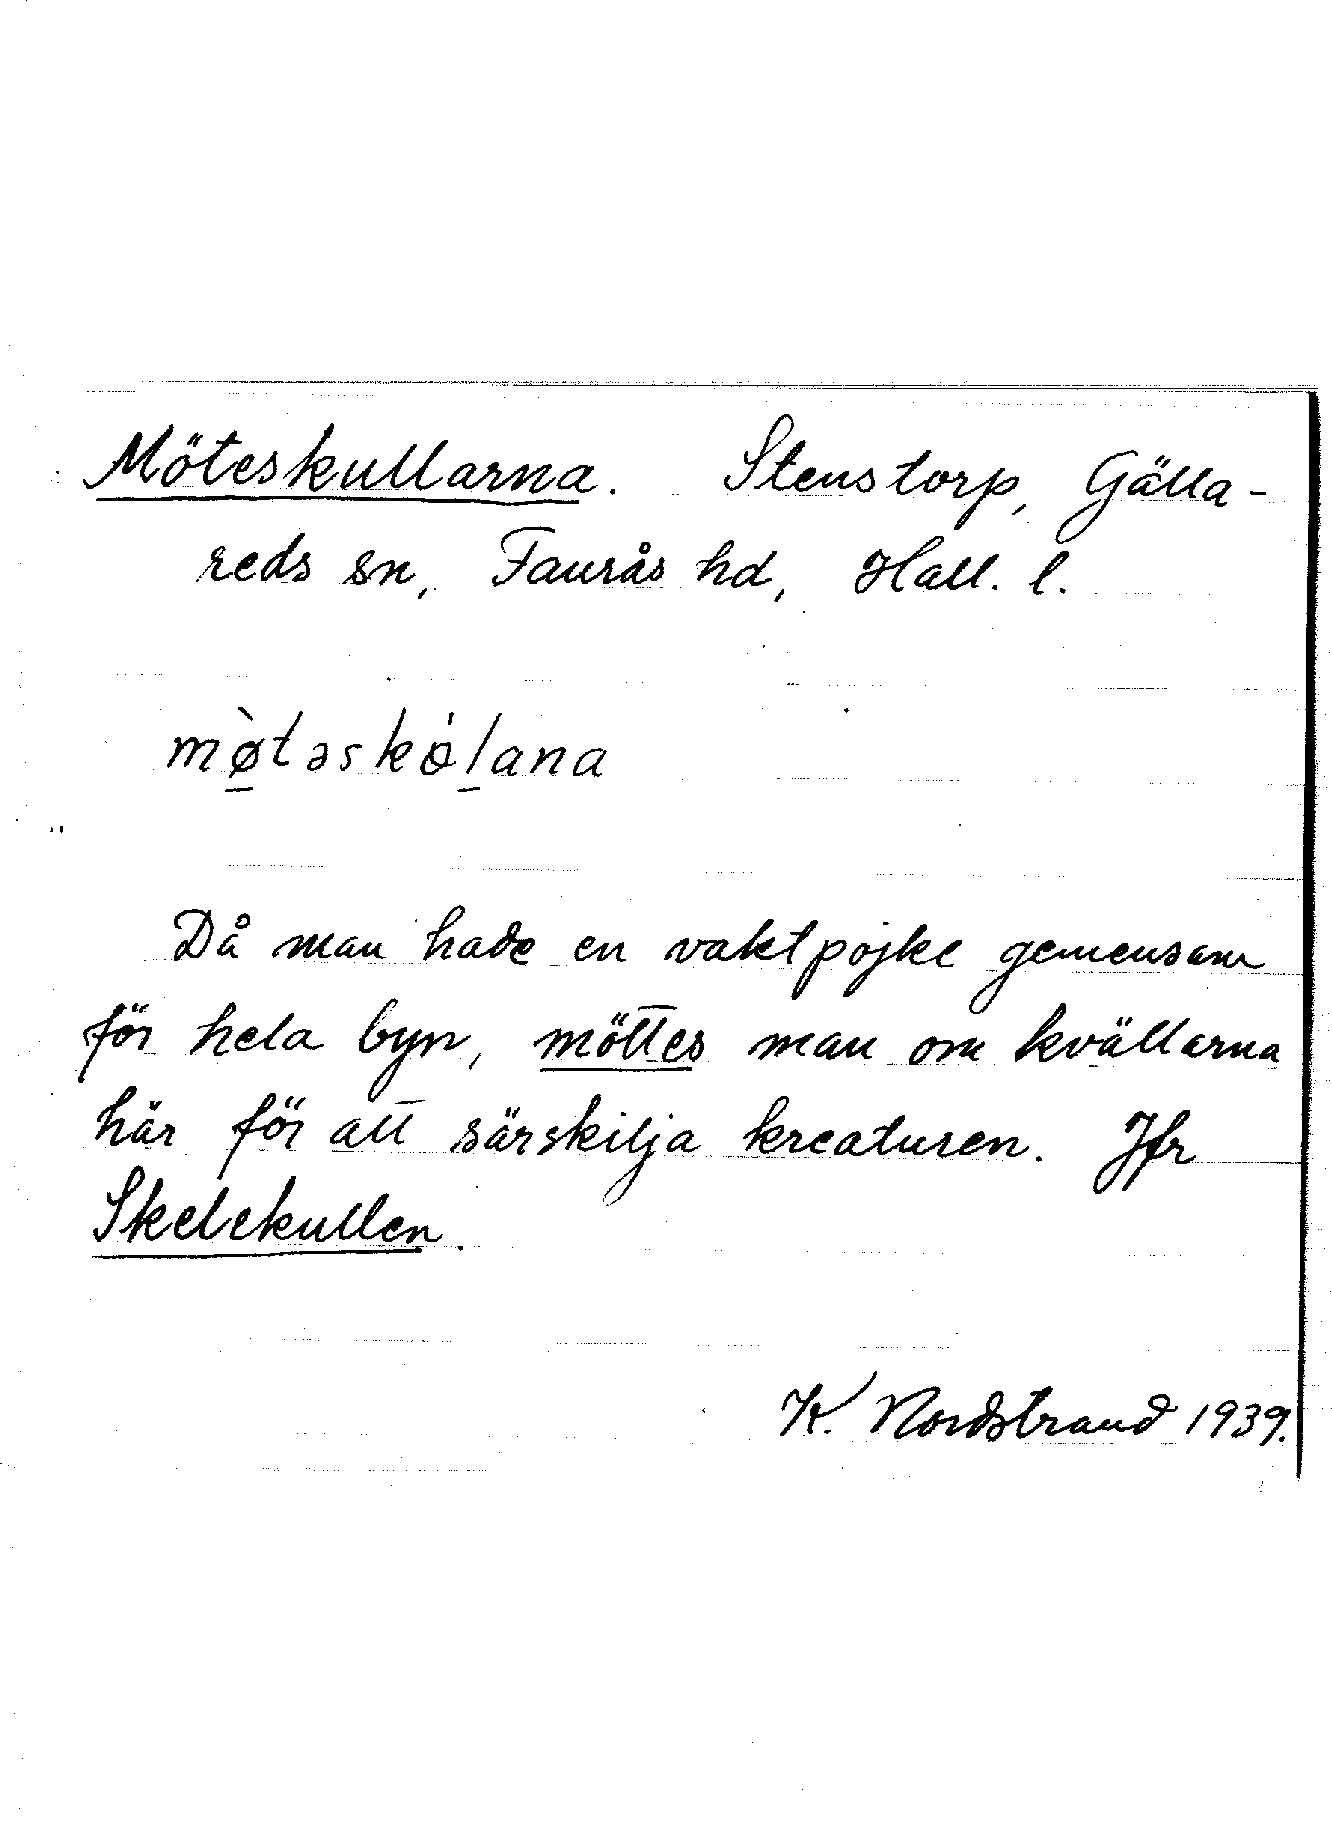 Möteskullarna. Stenstorp, Gälla-
reds sn, Faurås hd, Hall. l.
mø̀təskȯlana
Då man hade en vaktpojke gemensam
för hela byn, möttes man om kvällarna
här för att särskilja kreaturen. Jfr
Skelekullen.
K. Nordstrand 1939.